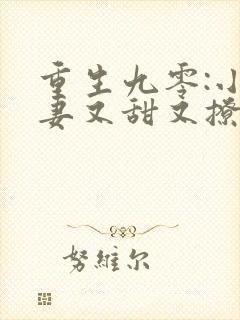 重生九零:小
妻又甜又撩
努維尔